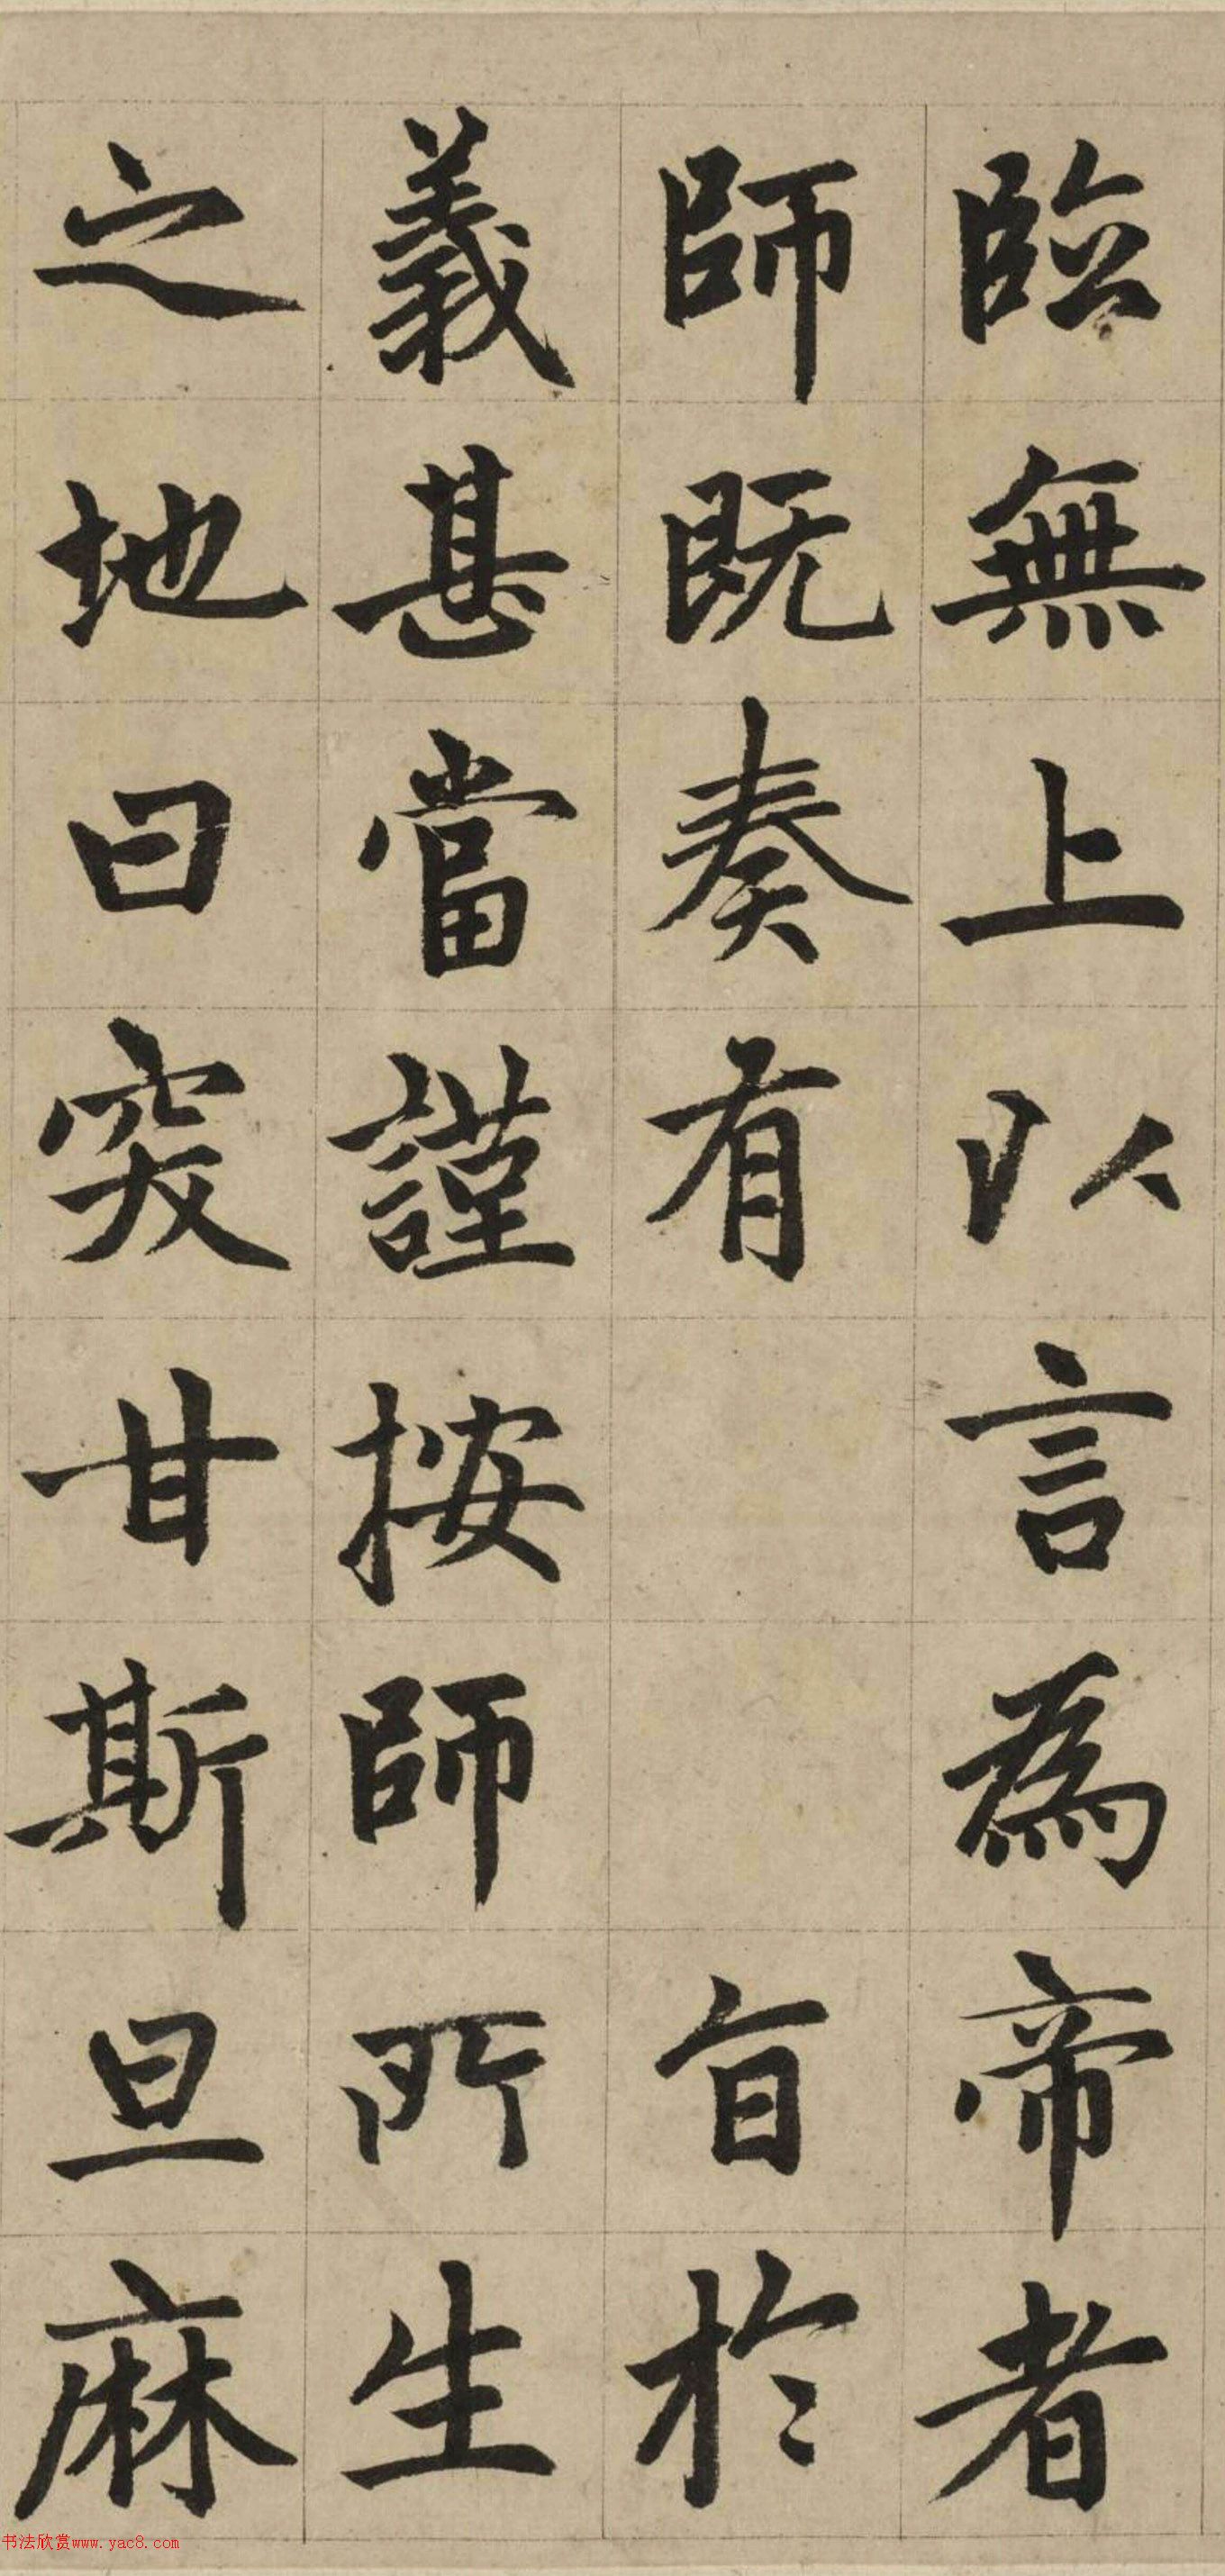 臨無上以言為帝者
師既奏有旨於
義甚當謹按師所生
之地曰突甘斯旦麻
书法欣赏www.yac8.com